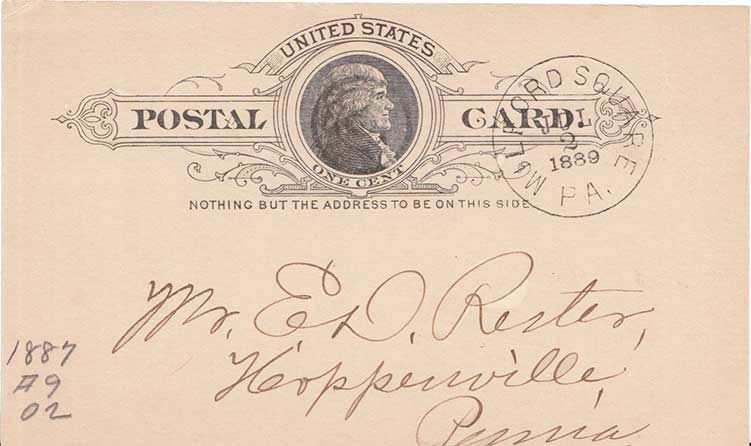 UNITED STATES
POSTAL CARD
ONE CENT
NOTHING BUT THE ADDRESS TO BE ON THIS SIDE
MILFORD SQUARE
JUL
2
1889
PA.
Mr. E. D. Rester,
Hoppenville,
Penna
1887
#9
02